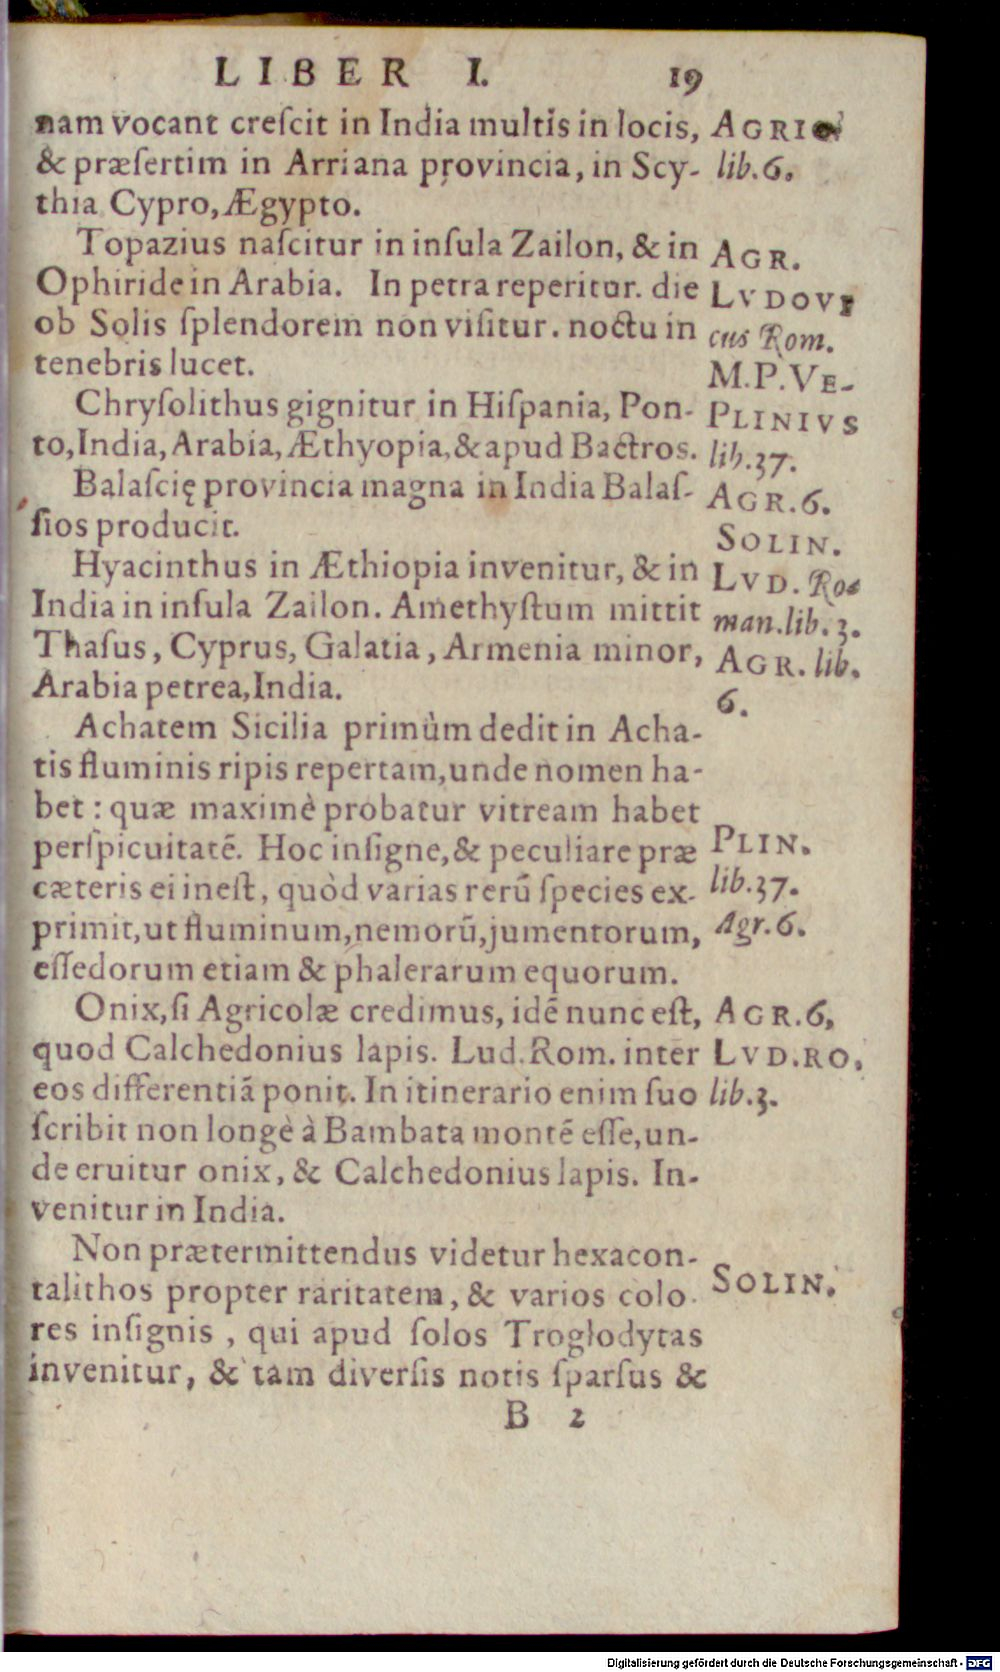 LIBER I. 19
nam vocant creſcit in India multis in locis,
& præſertim in Arriana provincia, in Scy-
thia Cypro, Ægypto.
Topazius naſcitur in inſula Zailon, & in
Ophiride in Arabia. In petra reperitur. die
ob Solis ſplendorem non viſitur. noctu in
tenebris lucet.
Chryſolithus gignitur in Hiſpania, Pon-
to, India, Arabia, Æthyopia, & apud Bactros.
Balaſcię provincia magna in India Balaſ-
ſios producit.
Hyacinthus in Æthiopia invenitur, & in
India in inſula Zailon. Amethyſtum mittit
Thaſus, Cyprus, Galatia, Armenia minor,
Arabia petrea, India.
Achatem Sicilia primùm dedit in Acha-
tis fluminis ripis repertam, unde nomen ha-
bet: quæ maximè probatur vitream habet
perſpicuitatē. Hoc inſigne, & peculiare præ
cæteris ei ineſt, quòd varias rerū ſpecies ex-
primit, ut fluminum, nemorū, jumentorum,
eſſedorum etiam & phalerarum equorum.
Onix, ſi Agricolæ credimus, idē nunc eſt,
quod Calchedonius lapis. Lud. Rom. inter
eos differentiā ponit. In itinerario enim ſuo
ſcribit non longè à Bambata montē eſſe, un-
de eruitur onix, & Calchedonius lapis. In-
venitur in India.
Non prætermittendus videtur hexacon-
talithos propter raritatem, & varios colo-
res inſignis, qui apud ſolos Troglodytas
invenitur, & tam diverſis notis ſparſus &
B 2
AGRIC
lib. 6.
AGR.
LVDOVI
cus Rom.
M. P. VE-
PLINIVS
lib. 37.
AGR. 6.
SOLIN.
LVD. Ro-
man. lib. 3.
AGR. lib.
6.
PLIN.
lib. 37.
Agr. 6.
AGR. 6,
LVD. RO.
lib. 3.
SOLIN.
Digitalisierung gefördert durch die Deutsche Forschungsgemeinschaft - DFG